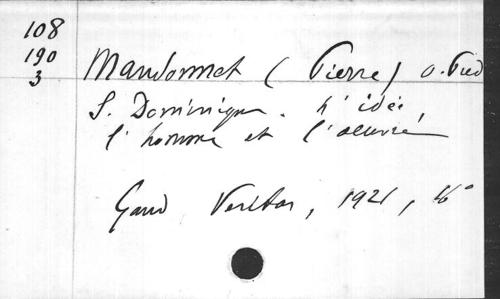 108
190
3
Mandonnet (Pierre) O. Pred
S. Dominique. L'idée,
l'homme et l'oeuvre
Gand Veritas, 1921, 16°